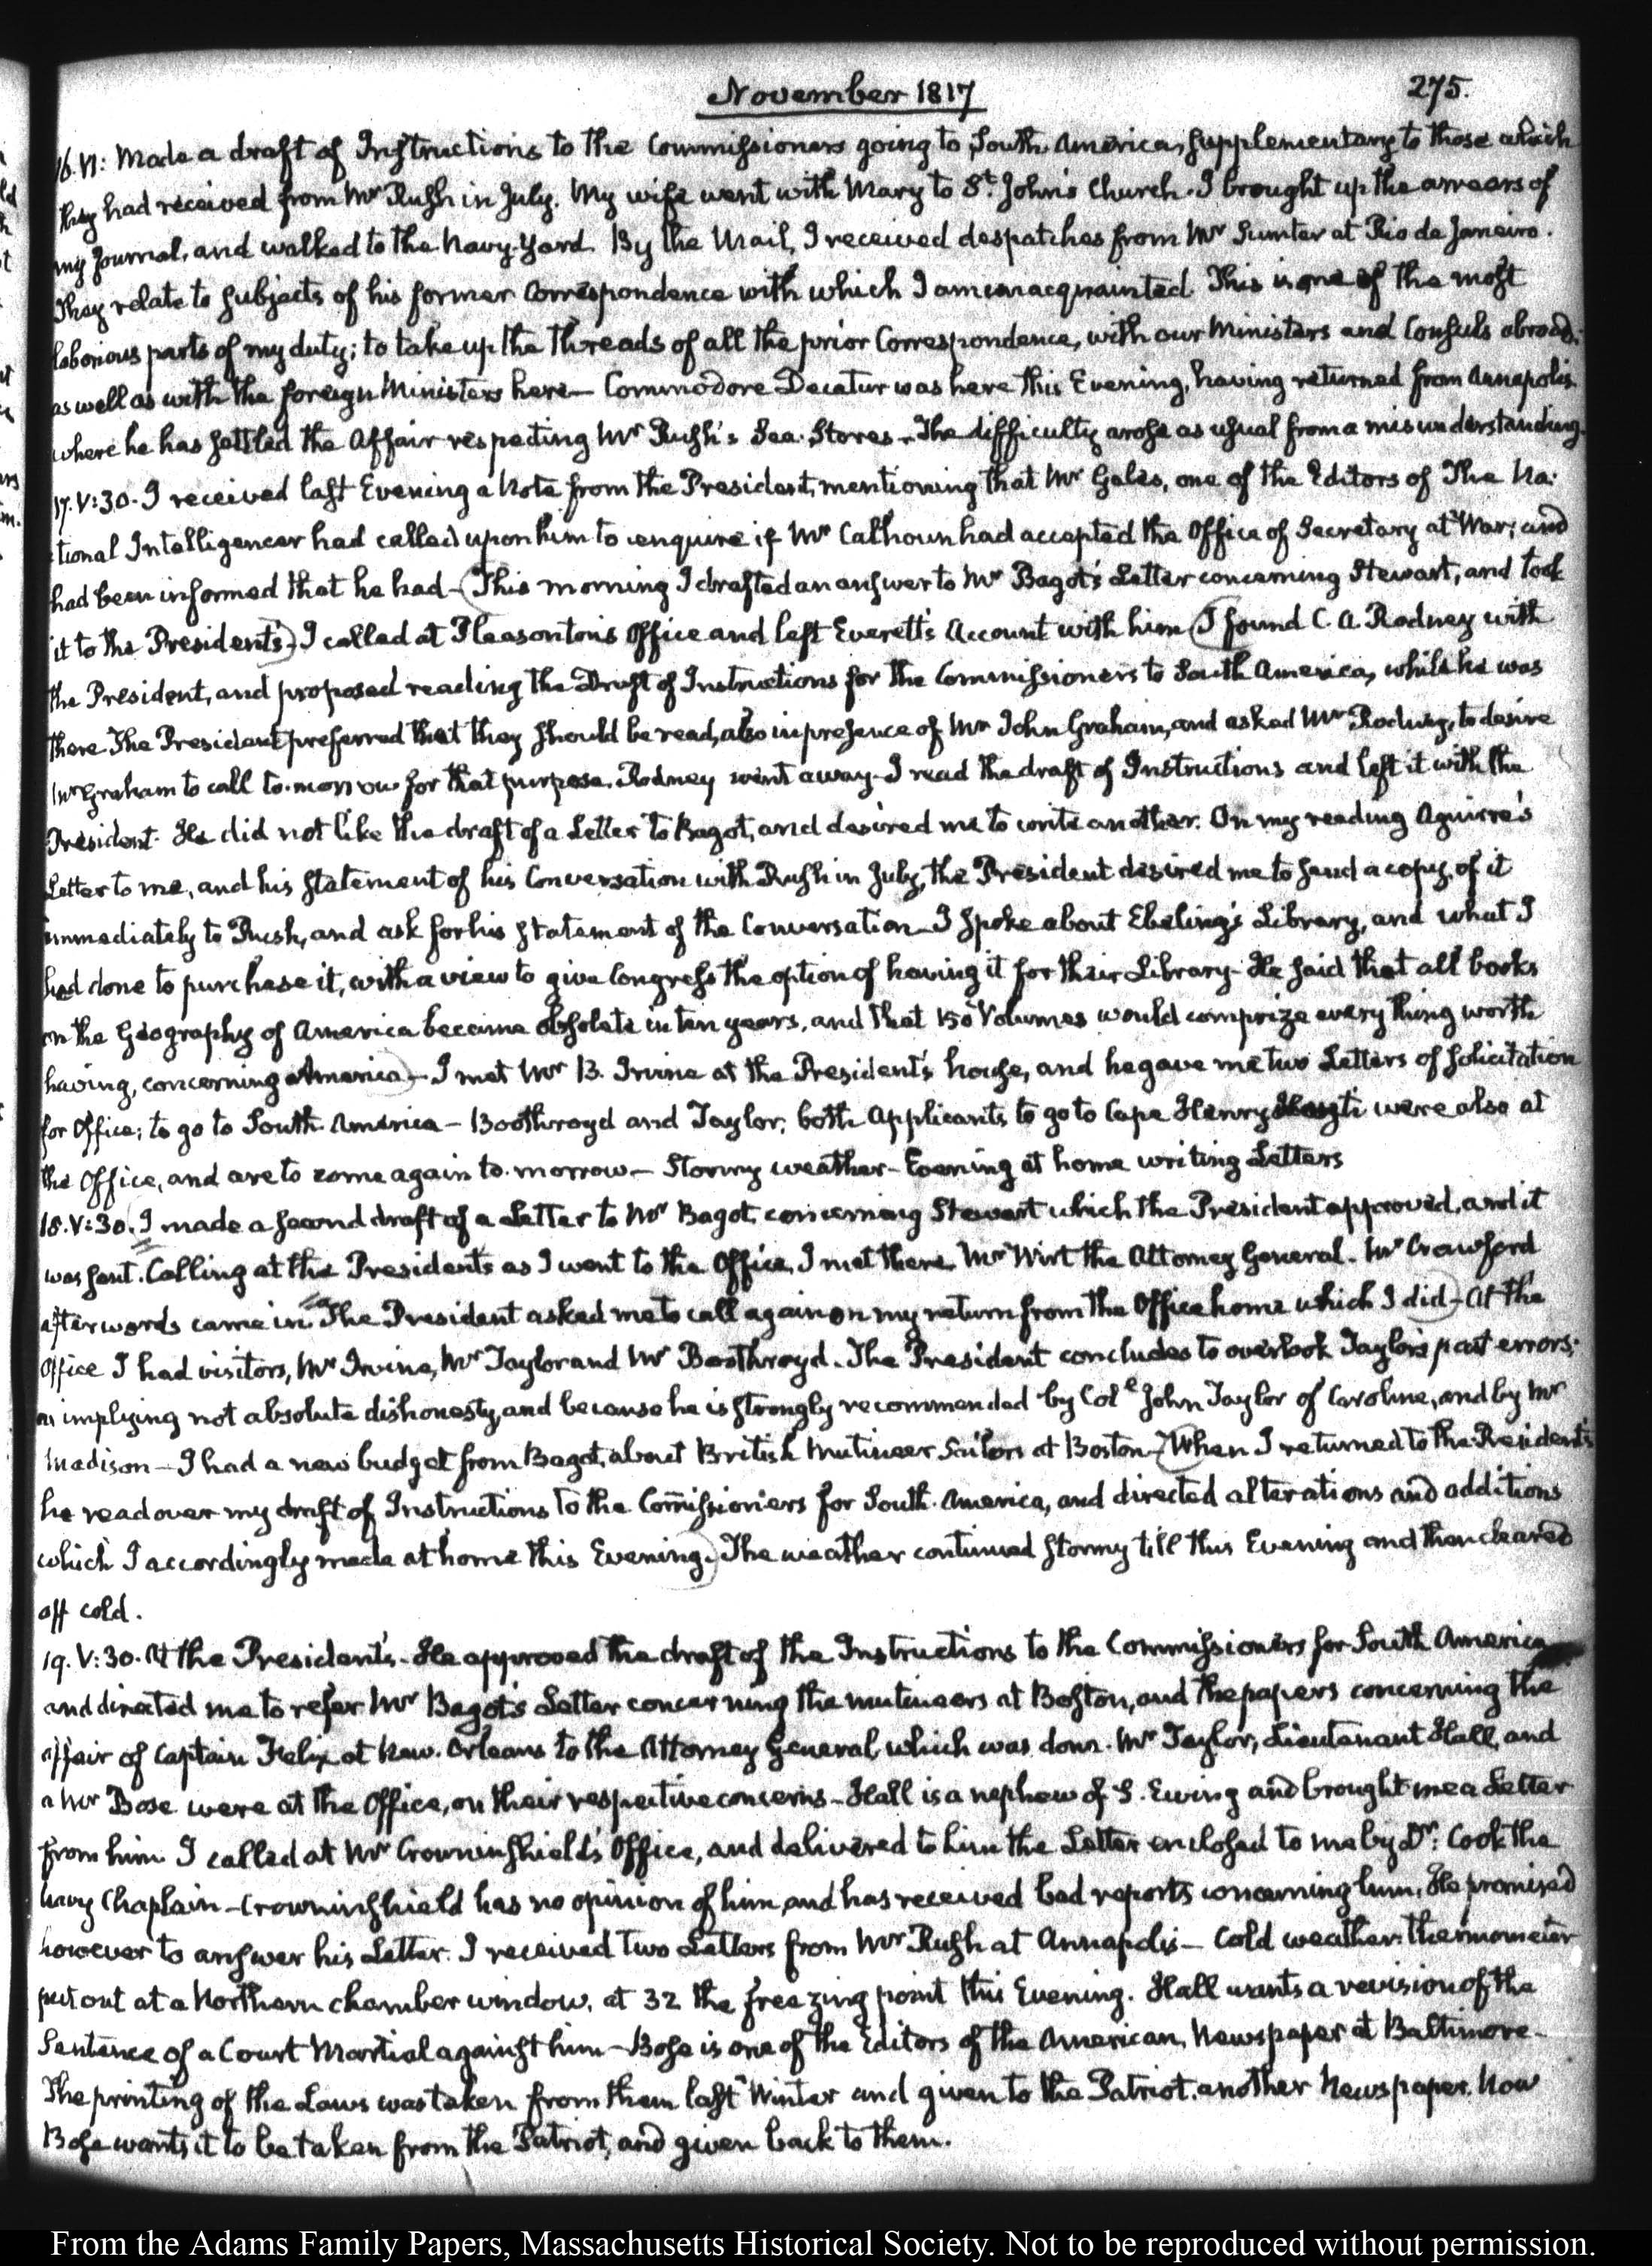 November 1817
275.
16. VI: Made a draft of Instructions to the Commissioners going to South America, supplementary to those which
they had received from Mr Rush in July. My wife went with Mary to St. John's Church. I brought up the arrears of
my Journal, and walked to the Navy-Yard. By the Mail, I received despatches from Mr Sumter at Rio de Janeiro.
They relate to subjects of his former Correspondence with which I am unacquainted. This is one of the most
laborious parts of my duty; to take up the threads of all the prior Correspondence, with our Ministers and Consuls abroad:
as well as with the foreign Ministers here— Commodore Decatur was here this Evening, having returned from Annapolis
where he has settled the Affair respecting Mr Rush's Sea-Stores. The difficulty arose as usual from a misunderstanding.
17. V:30. I received last Evening a Note from the President, mentioning that Mr Gales, one of the Editors of The Na-
tional Intelligencer had called upon him to enquire if Mr Calhoun had accepted the Office of Secretary at War; and
had been informed that he had— (This morning I drafted an answer to Mr Bagot's Letter concerning Stewart, and took
it to the President's.) I called at Pleasonton's Office and left Everett's Account with him (I found C. A. Rodney with
the President, and proposed reading the Draft of Instructions for the Commissioners to South America, while he was
there. The President preferred that they should be read, also in presence of Mr John Graham, and asked Mr Rodney, to desire
Mr Graham to call to-morrow for that purpose. Rodney went away. I read the draft of Instructions and left it with the
President. He did not like the draft of a Letter to Bagot, and desired me to write another. On my reading Aguirre's
Letter to me, and his statement of his Conversation with Rush in July, the President desired me to send a copy of it
immediately to Rush, and ask for his statement of the Conversation— I spoke about Ebeling's Library, and what I
had done to purchase it, with a view to give Congress the option of having it for their Library. He said that all books
on the Geography of America became obsolete in ten years, and that 150 Volumes would comprize every thing worth
having, concerning America)— I met Mr B. Irvine at the President's house, and he gave me two Letters of solicitation
for Office; to go to South America— Boothroyd and Taylor, both Applicants to go to Cape Henry Hayti were also at
the Office, and are to come again to-morrow— Stormy weather— Evening at home writing Letters
18. V:30. I made a second draft of a Letter to Mr Bagot concerning Stewart which the President approved, and it
was sent. Calling at the President's as I went to the Office, I met there Mr Wirt the Attorney General. Mr Crawford
afterwards came in. The President asked me to call again on my return from the Office home which I did)— At the
Office I had visitors, Mr Irvine, Mr Taylor and Mr Boothroyd. The President concludes to overlook Taylor's past errors;
as implying not absolute dishonesty, and because he is strongly recommended by Coll John Taylor of Caroline, and by Mr
Madison— I had a new budget from Bagot, about British Mutineer Sailors at Boston— (When I returned to the President's
he read over my draft of Instructions to the Commissioners for South America, and directed alterations and additions
which I accordingly made at home this Evening.) The weather continued stormy till this Evening and then cleared
off cold.
19. V:30. At the President's. He approved the draft of the Instructions to the Commissioners for South America
and directed me to refer Mr Bagot's Letter concerning the mutineers at Boston, and the papers concerning the
affair of Captain Felix at New-Orleans to the Attorney General which was done. Mr Taylor, Lieutenant Hall, and
a Mr Bose were at the Office, on their respective concerns— Hall is a nephew of S. Ewing and brought me a Letter
from him. I called at Mr Crowninshield's Office, and delivered to him the Letter enclosed to me by Dr. Cook the
Navy Chaplain— Crowninshield has no opinion of him, and has received bad reports concerning him. He promised
however to answer his Letter. I received two Letters from Mr Rush at Annapolis— Cold weather: thermometer
put out at a Northern chamber window, at 32 the freezing point this Evening. Hall wants a revision of the
Sentence of a Court Martial against him— Bose is one of the Editors of the American, Newspaper at Baltimore—
The printing of the Laws was taken from them last Winter and given to the Patriot, another Newspaper. Now
Bose wants it to be taken from the Patriot, and given back to them.
From the Adams Family Papers, Massachusetts Historical Society. Not to be reproduced without permission.